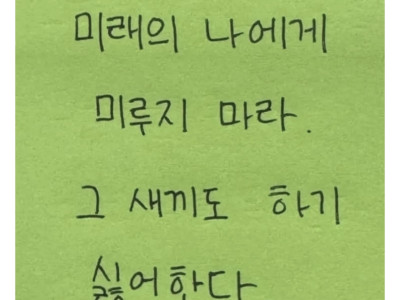 미래의 나에게
미루지 마라.
그 새끼도 하기
싫어한다